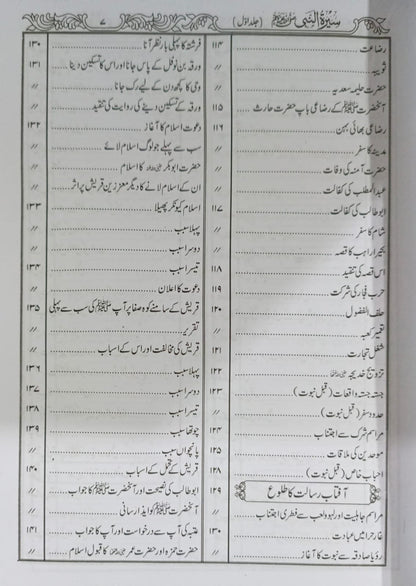 سیرۃ النبی ﷺ (جلد اول) ۷
رضاعت ۱۱۴
ثویبہ 〃
حضرت حلیمہ سعدیہ 〃
آنحضرت ﷺ کے رضاعی باپ حضرت حارث ۱۱۵
رضاعی بھائی بہن ۱۱۶
مدینہ کا سفر 〃
حضرت آمنہ کی وفات 〃
عبدالمطلب کی کفالت 〃
ابوطالب کی کفالت ۱۱۷
شام کا سفر 〃
بحیرا راہب کا قصہ 〃
اس قصہ کی تنقید ۱۱۸
حرب فجار کی شرکت ۱۱۹
حلف الفضول ۱۲۰
تعمیر کعبہ 〃
شغل تجارت ۱۲۱
تزویج خدیجہ ۱۲۲
جستہ جستہ واقعات (قبل نبوت) ۱۲۳
حدود سفر (قبل نبوت) 〃
مراسم شرک سے اجتناب ۱۲۴
موحدین کی ملاقات ۱۲۵
احباب خاص (قبل نبوت) ۱۲۸
آفتاب رسالت کا طلوع ۱۲۹
مراسم جاہلیت اور لہو و لعب سے فطری اجتناب 〃
غار حرا میں عبادت ۱۳۰
رؤیا صادقہ سے نبوت کا آغاز 〃
فرشتہ کا پہلی بار نظر آنا ۱۳۰
ورقہ بن نوفل کے پاس جانا اور اس کا تسکین دینا ۱۳۱
وحی کا کچھ دن کے لیے رک جانا 〃
ورقہ کے تسکین دینے کی روایت کی تنقید 〃
دعوت اسلام کا آغاز ۱۳۲
سب سے پہلے جو لوگ اسلام لائے 〃
حضرت ابوبکر کا اسلام 〃
ان کے اسلام لانے کا دیگر معززین قریش پر اثر 〃
اسلام کیونکر پھیلا ۱۳۳
پہلا سبب 〃
دوسرا سبب 〃
تیسرا سبب ۱۳۴
دعوت کا اعلان 〃
قریش کے سامنے کوہ صفا پر آپ ﷺ کی سب سے پہلی ۱۳۵
تقریر 〃
قریش کی مخالفت اور اس کے اسباب 〃
پہلا سبب ۱۳۶
دوسرا سبب ۱۳۷
تیسرا سبب ۱۳۸
چوتھا سبب ۱۳۹
پانچواں سبب 〃
قریش کے تحمل کے اسباب ۱۴۰
ابوطالب کی نصیحت اور آنحضرت ﷺ کا جواب 〃
آنحضرت ﷺ کو ایذا رسانی 〃
عتبہ کی آپ سے درخواست اور آپ کا جواب ۱۴۱
حضرت حمزہ اور حضرت عمر کا قبول اسلام 〃